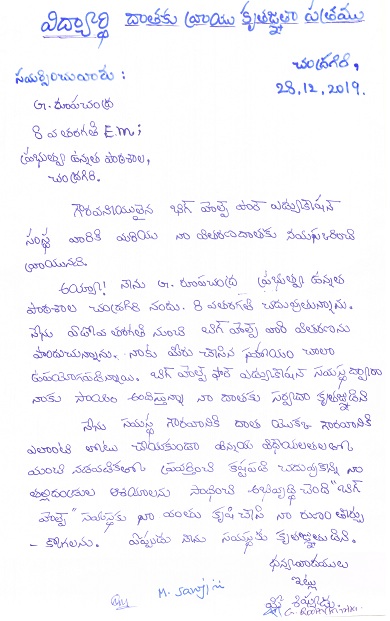 విద్యార్థి దాతకు వ్రాయు కృతజ్ఞతా పత్రము
చంద్రగిరి,
28.12.2019.
సమర్పించువారు :
G. రూపచంద్ర
8 వ తరగతి E.m;
ప్రభుత్వ ఉన్నత పాఠశాల,
చంద్రగిరి.
గౌరవనీయులైన బిగ్ హెల్ప్ ఫర్ ఎడ్యుకేషన్
సంస్థ వారికి మరియు నా దాతకు నమస్కరించి
వ్రాయునది.
అయ్యా! నేను G. రూపచంద్ర ప్రభుత్వ ఉన్నత
పాఠశాల చంద్రగిరి నందు. 8 వ తరగతి చదువుతున్నాను.
నేను తరగతి నుంచి బిగ్ హెల్ప్ వారి
పొందుచున్నాను. నాకు మీరు చేసిన సహాయం చాలా
ఉపయోగపడినాయి. బిగ్ హెల్ప్ ఫర్ ఎడ్యుకేషన్ సంస్థ ద్వారా
నాకు సాయం అందిస్తున్న నా దాతకు సర్వదా కృతజ్ఞుడిని
నేను సంస్థ గౌరవానికి దాత యొక్క గౌరవానికి
ఎలాంటి లోటు చేయకుండా ఉన్నత
మంచి నడవడికతో ప్రవర్తించి కష్టపడి చదువుకొని నా
తల్లిదండ్రుల ఆశయాలను సాధించి అభివృద్ధి చెంది "బిగ్
హెల్ప్" సంస్థకు నా వంతు కృషి చేసి నా రుణం తీర్చు
- కోగలను. ఎప్పుడు నేను సంస్థకు కృతజ్ఞుడిని.
ధన్యవాదములు
ఇట్లు
M. Sarojini